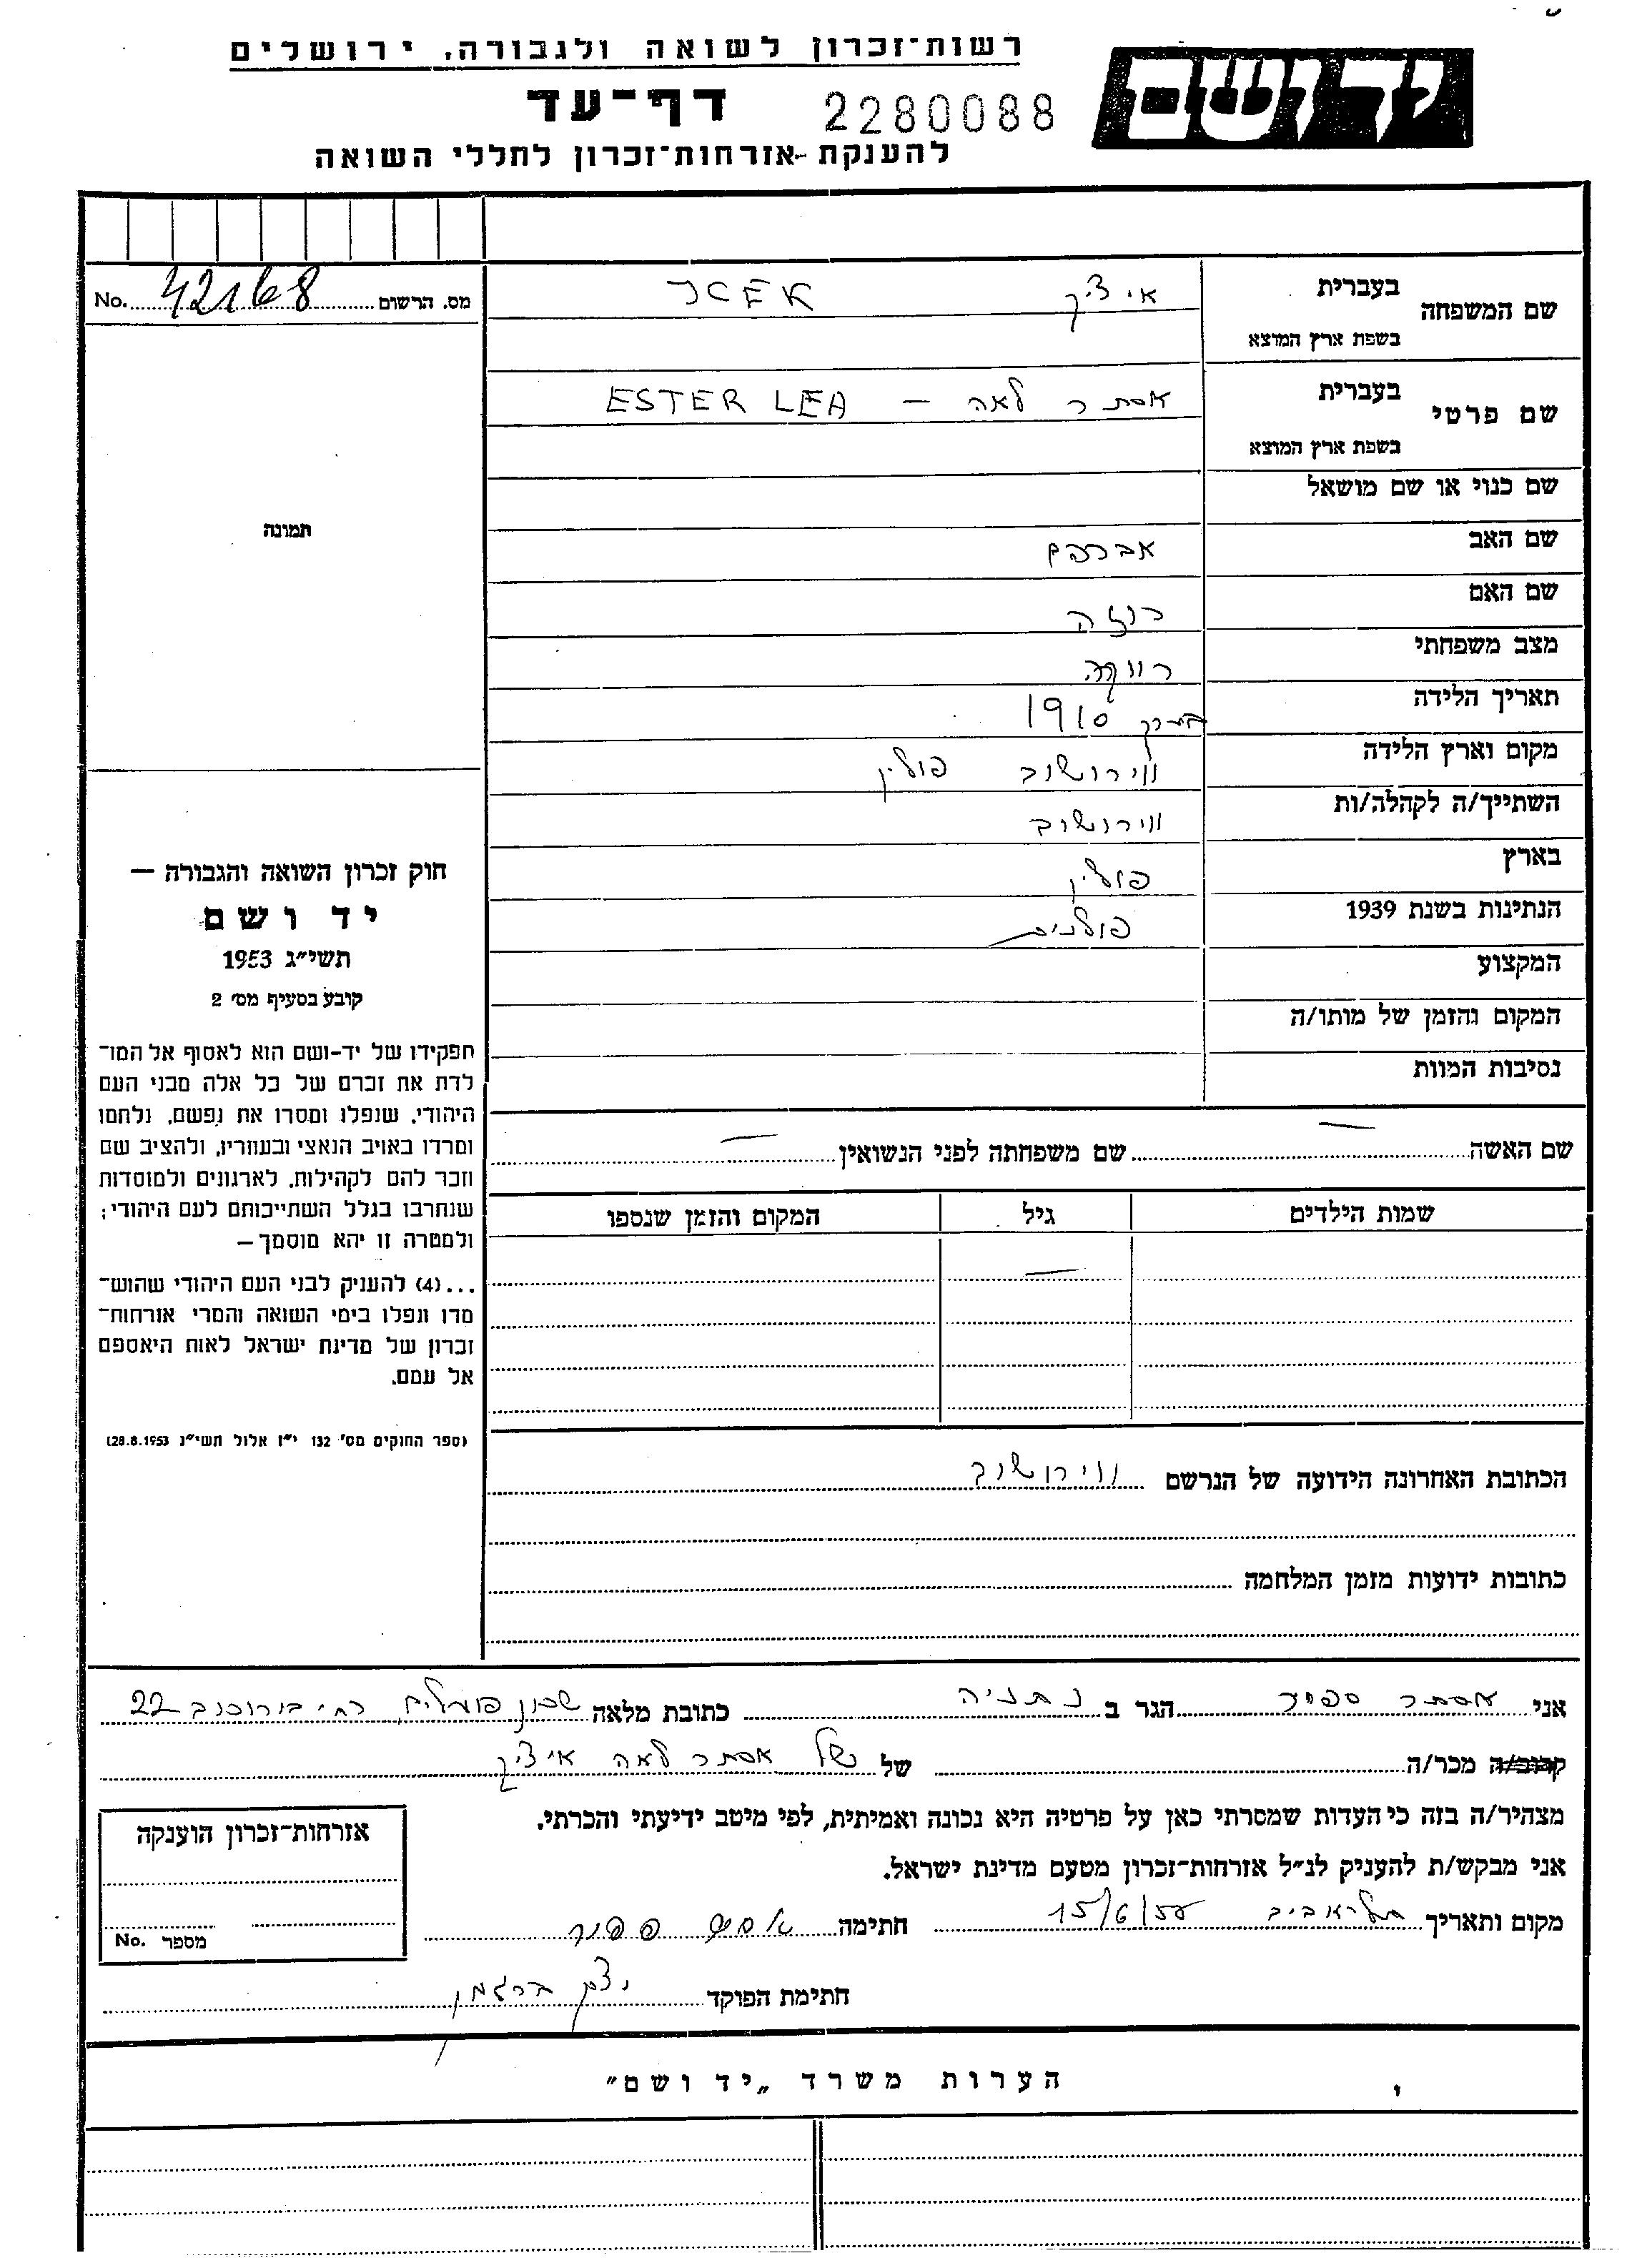 רשות־זכרון לשואה ולגבורה, ירושלים
יד ושם
דף־עד 2280088
להענקת אזרחות־זכרון לחללי השואה
No. 42168 מס. הרשום
שם המשפחה
בעברית איציק JCEK
בשפת ארץ המוצא
שם פרטי
בעברית אסתר לאה – ESTER LEA
בשפת ארץ המוצא
שם כנוי או שם מושאל
שם האב אברהם
שם האם רוזה
מצב משפחתי רווקה
תאריך הלידה 1910
מקום וארץ הלידה ווירושוב פולין
השתייך/ה לקהלה/ות ווירושוב
בארץ פולין
הנתינות בשנת 1939 פולנית
המקצוע
המקום והזמן של מותו/ה
נסיבות המוות
שם האשה — שם משפחתה לפני הנשואין —
שמות הילדים גיל המקום והזמן שנספו
—
הכתובת האחרונה הידועה של הנרשם ווירושוב
כתובות ידועות מזמן המלחמה
תמונה
חוק זכרון השואה והגבורה —
יד ושם
תשי״ג 1953
קובע בסעיף מס׳ 2
תפקידו של יד-ושם הוא לאסוף אל המו־
לדת את זכרם של כל אלה מבני העם
היהודי, שנפלו ומסרו את נפשם, נלחמו
ומרדו באויב הנאצי ובעוזריו, ולהציב שם
וזכר להם לקהילות, לארגונים ולמוסדות
שנחרבו בגלל השתייכותם לעם היהודי;
ולמטרה זו יהא מוסמך —
...(4) להעניק לבני העם היהודי שהוש־
מדו ונפלו בימי השואה והמרי אזרחות־
זכרון של מדינת ישראל לאות היאספם
אל עמם.
(ספר החוקים מס׳ 132 י״ז אלול תשי״ג 28.8.1953)
אני אסתר ספיר הגר ב נתניה כתובת מלאה שכון פועלים, רח׳ בורוכוב 22
קרוב/ה מכר/ה של של אסתר לאה איציק
מצהיר/ה בזה כי העדות שמסרתי כאן על פרטיה היא נכונה ואמיתית, לפי מיטב ידיעתי והכרתי.
אני מבקש/ת להעניק לנ״ל אזרחות־זכרון מטעם מדינת ישראל.
מקום ותאריך תל אביב 15/6/55 חתימה אסתר ספיר
חתימת הפוקד ברגמן
אזרחות־זכרון הוענקה
No. מספר
הערות משרד „יד ושם״